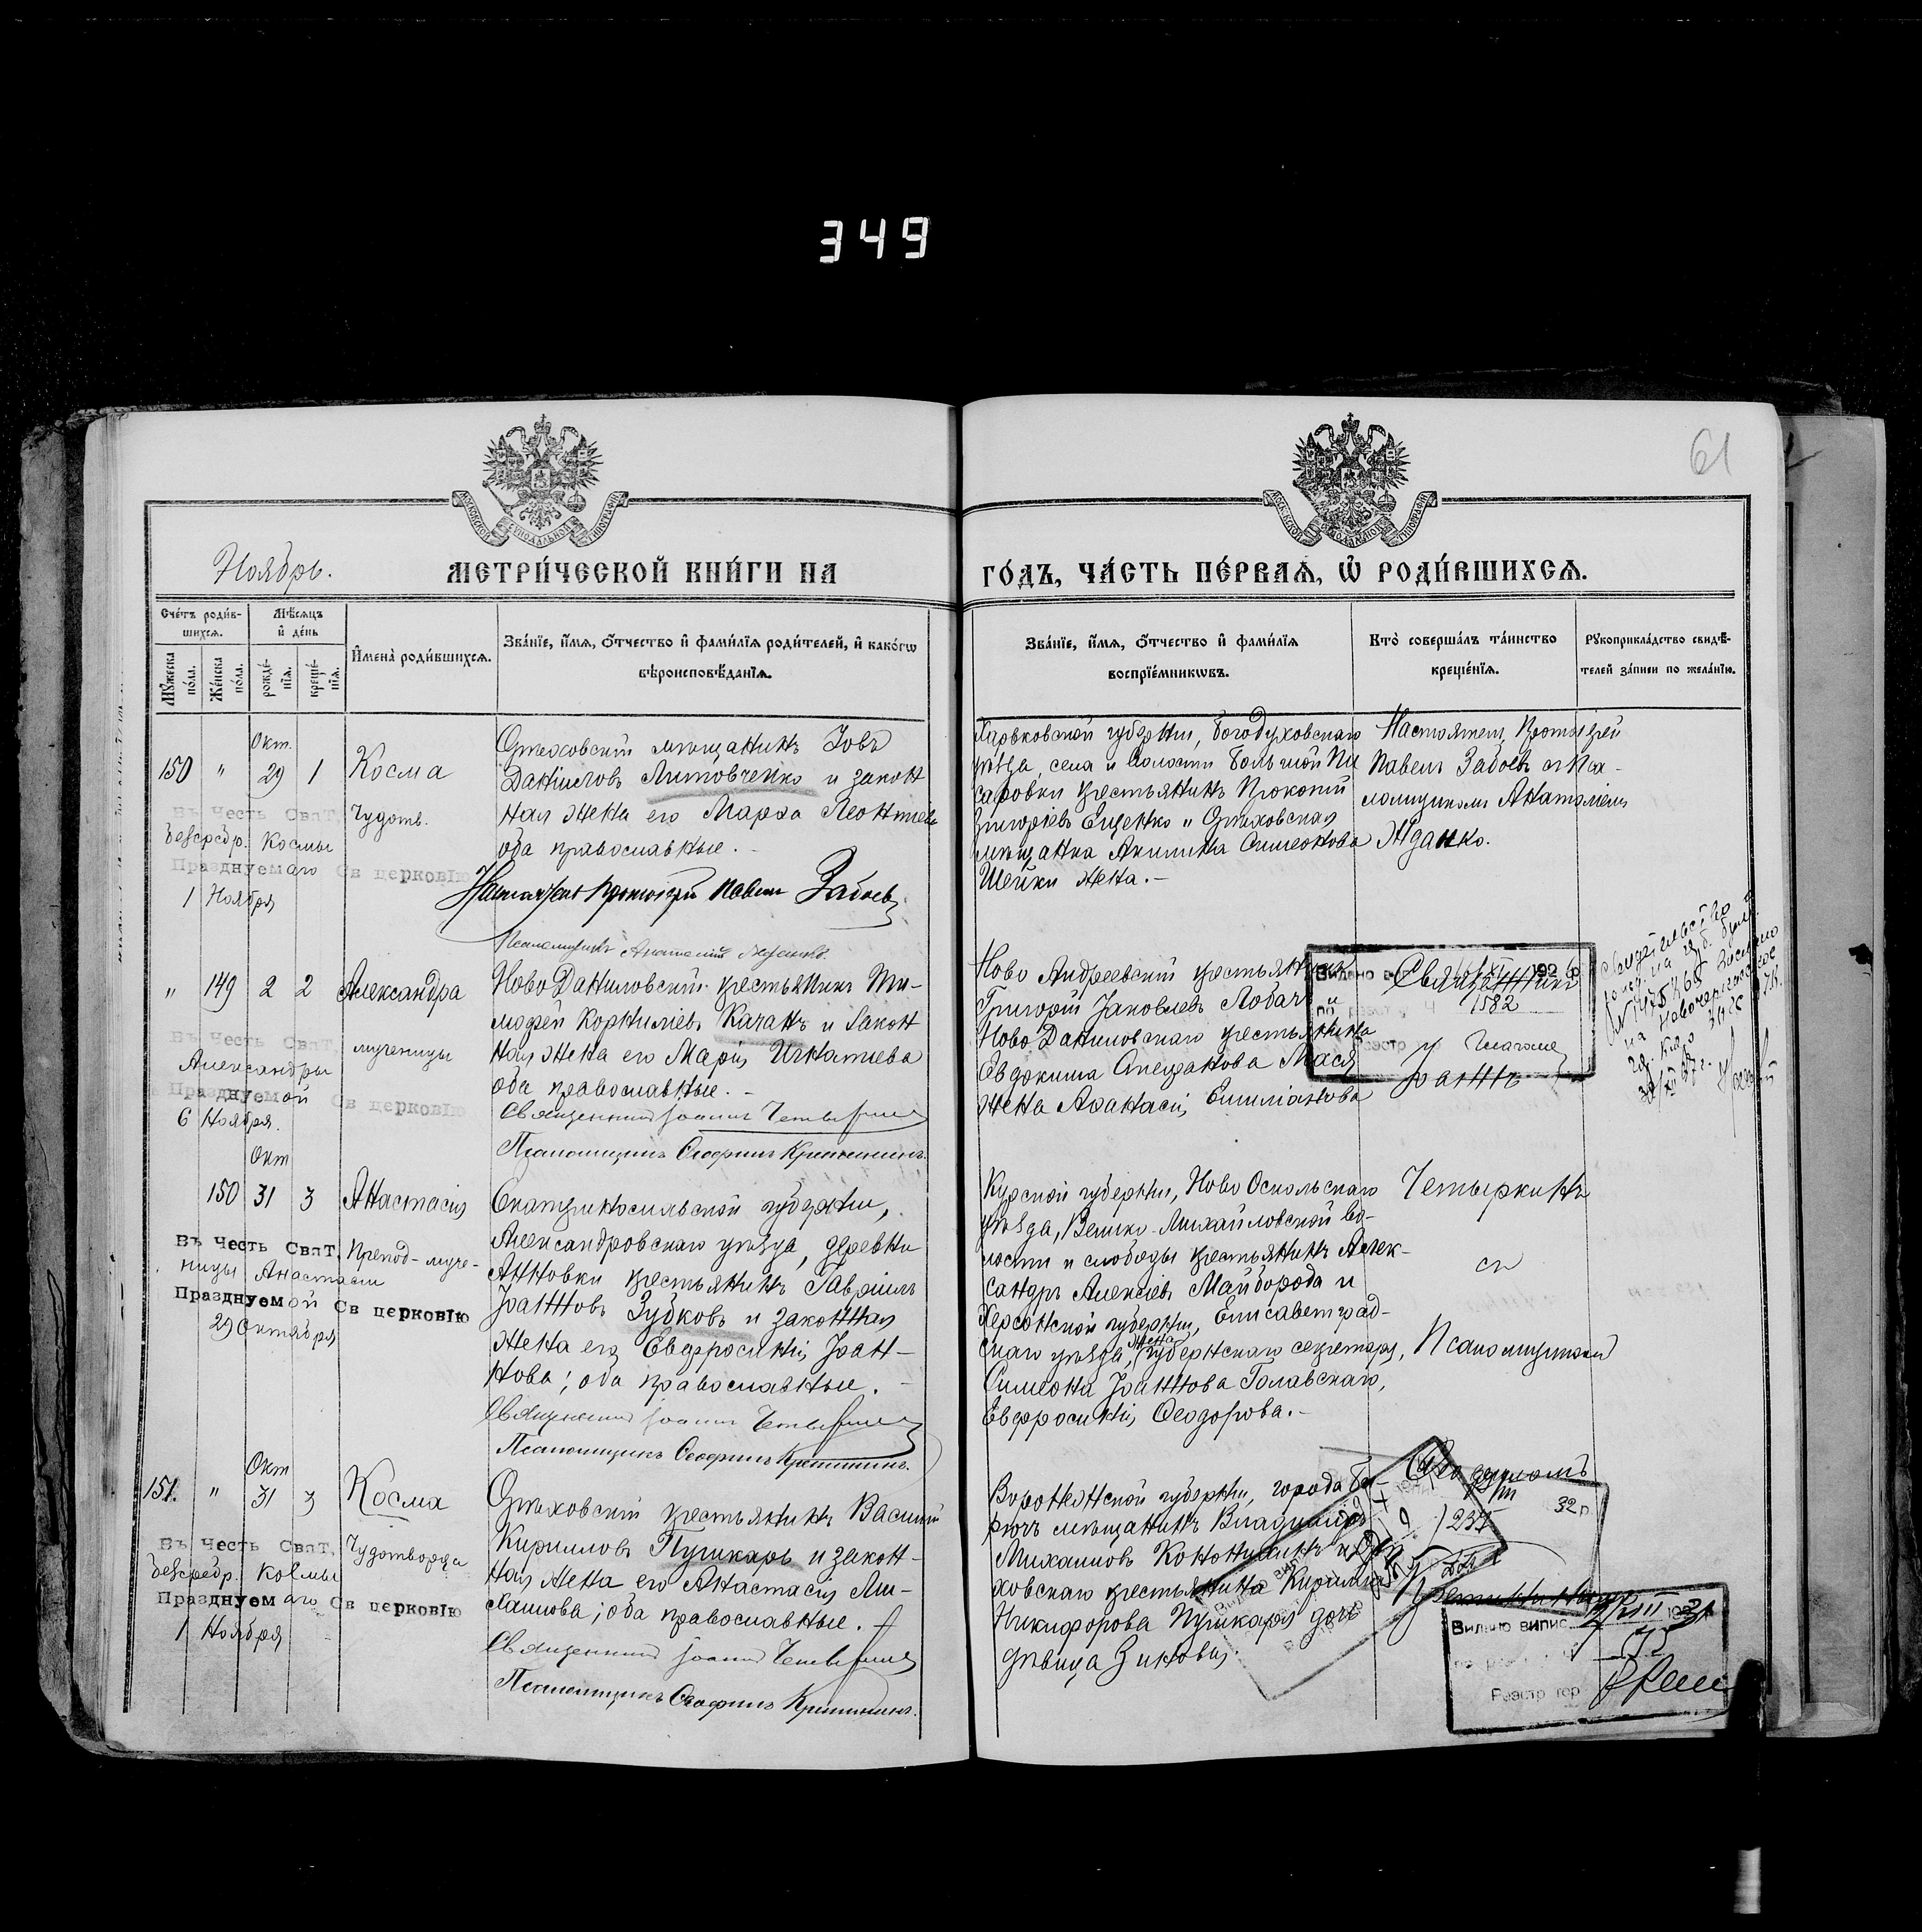 349
61
Ноябрь.
МЕТРИ́ЧЕСКОЙ КНИ́ГИ НА
ГО́ДЪ, ЧА́СТЬ ПЕ́РВАѦ, Ѡ҆ РОДИ́ВШИХСѦ.
Сче́тъ роди́в-
шихсѧ.
Мѣ́сѧцъ
и҆ де́нь
Мꙋ́жеска
по́ла.
Же́нска
по́ла.
рожде́-
нїѧ.
креще́-
нїѧ.
И҆мена̀ роди́вшихсѧ.
Зва́нїе, и҆́мѧ, ѻ҆́тчество и҆ фами́лїѧ роди́телей, и҆ како́гѡ
вѣроисповѣ́данїѧ.
Зва́нїе, и҆́мѧ, ѻ҆́тчество и҆ фами́лїѧ
воспрїе́мникѡвъ.
Кто̀ соверша́лъ та́инство
креще́нїѧ.
Рꙋкоприкла́дство свидѣ́-
телей за́писи по жела́нїю.
Окт.
150 " 29 1 Косма
Въ Честь Свят. Чудотв.
безсребр. Космы
Празднуемаго Св церковІю
1 Ноября
Орѣховскій мѣщанинъ Іовъ
Даніиловъ Литовченко и закон
ная жена его Марѳа Леонтиева
оба православные.-
Настоятель Протоіерей Павелъ Забоев
Псаломщикъ Анатолій Жданко
Харьковской губерніи, Богодуховскаго
уѣзда, села и волости Большой Пи
саровки крестьянинъ Прокопій
Григоріевъ Ещенко и Орѣховская
мѣщанка Акилина Симеонова
Шейки жена.-
Настоятель Протоіерей
Павелъ Забоевъ съ Пса-
ломщикомъ Анатоліемъ
Жданко.
" 149 2 2 Александра
Въ Честь Свят. мученицы
Александры
Празднуемой Св церковІю
6 Ноября.
Ново Даниловскій крестьянинъ Ти-
моѳей Корниліевъ Качанъ и закон
ная жена его Марія Игнатиева
оба православные.-
Священникъ Іоаннъ Четыркинъ
Псаломщикъ Ѳеофилъ Критининъ.
Ново Андреевскій крестьянинъ
Григорій Іаковлевъ Лобачъ и
Ново Даниловскаго крестьянина
Евдокима Стефанова Мася
жена Аѳанасія Емиліанова
Священникъ
1582
Іоаннъ
Окт
150 31 3 Анастасія
Въ Честь Свят. Препод-муче-
ницы Анастасіи
Празднуемой Св церковІю
29 Октября
Екатеринославской губерніи,
Александровскаго уѣзда, деревни
Анновки крестьянинъ Гавріилъ
Іоанновъ Зубковъ и законная
жена его Евфросинія Іоан-
нова; оба православные.-
Священникъ Іоаннъ Четыркинъ
Псаломщикъ Ѳеофилъ Критининъ.
Курской губерніи, Ново Оскольскаго
уѣзда, Велико-Михайловской во-
лости и слободы крестьянинъ Алек-
сандръ Алексіевъ Майборода и
Херсонской губерніи, Елисаветград-
скаго уѣзда, жена губернскаго секретаря,
Симеона Іоаннова Голавскаго,
Евфросинія Ѳеодорова.-
Четыркинъ
съ
Псаломщикомъ
Окт
151. " 31 3 Косма
Въ Честь Свят. Чудотворца
безсребр. Козмы
Празднуемаго Св церковІю
1 Ноября
Орѣховскій крестьянинъ Василій
Кирилловъ Пушкарь и закон-
ная жена его Анастасія Ми-
хаилова; оба православные.
Священникъ Іоаннъ Четыркинъ
Псаломщикъ Ѳеофилъ Критининъ.
Воронежской губерніи, города Би-
рючъ мѣщанинъ Владиміръ
Михаиловъ Кононыхинъ и Орѣ
ховскаго крестьянина Кирилла
Никифорова Пушкаря дочь
дѣвица Зиновія.
Ѳеофиломъ
32 р.
Видано випис
Реэстр гор